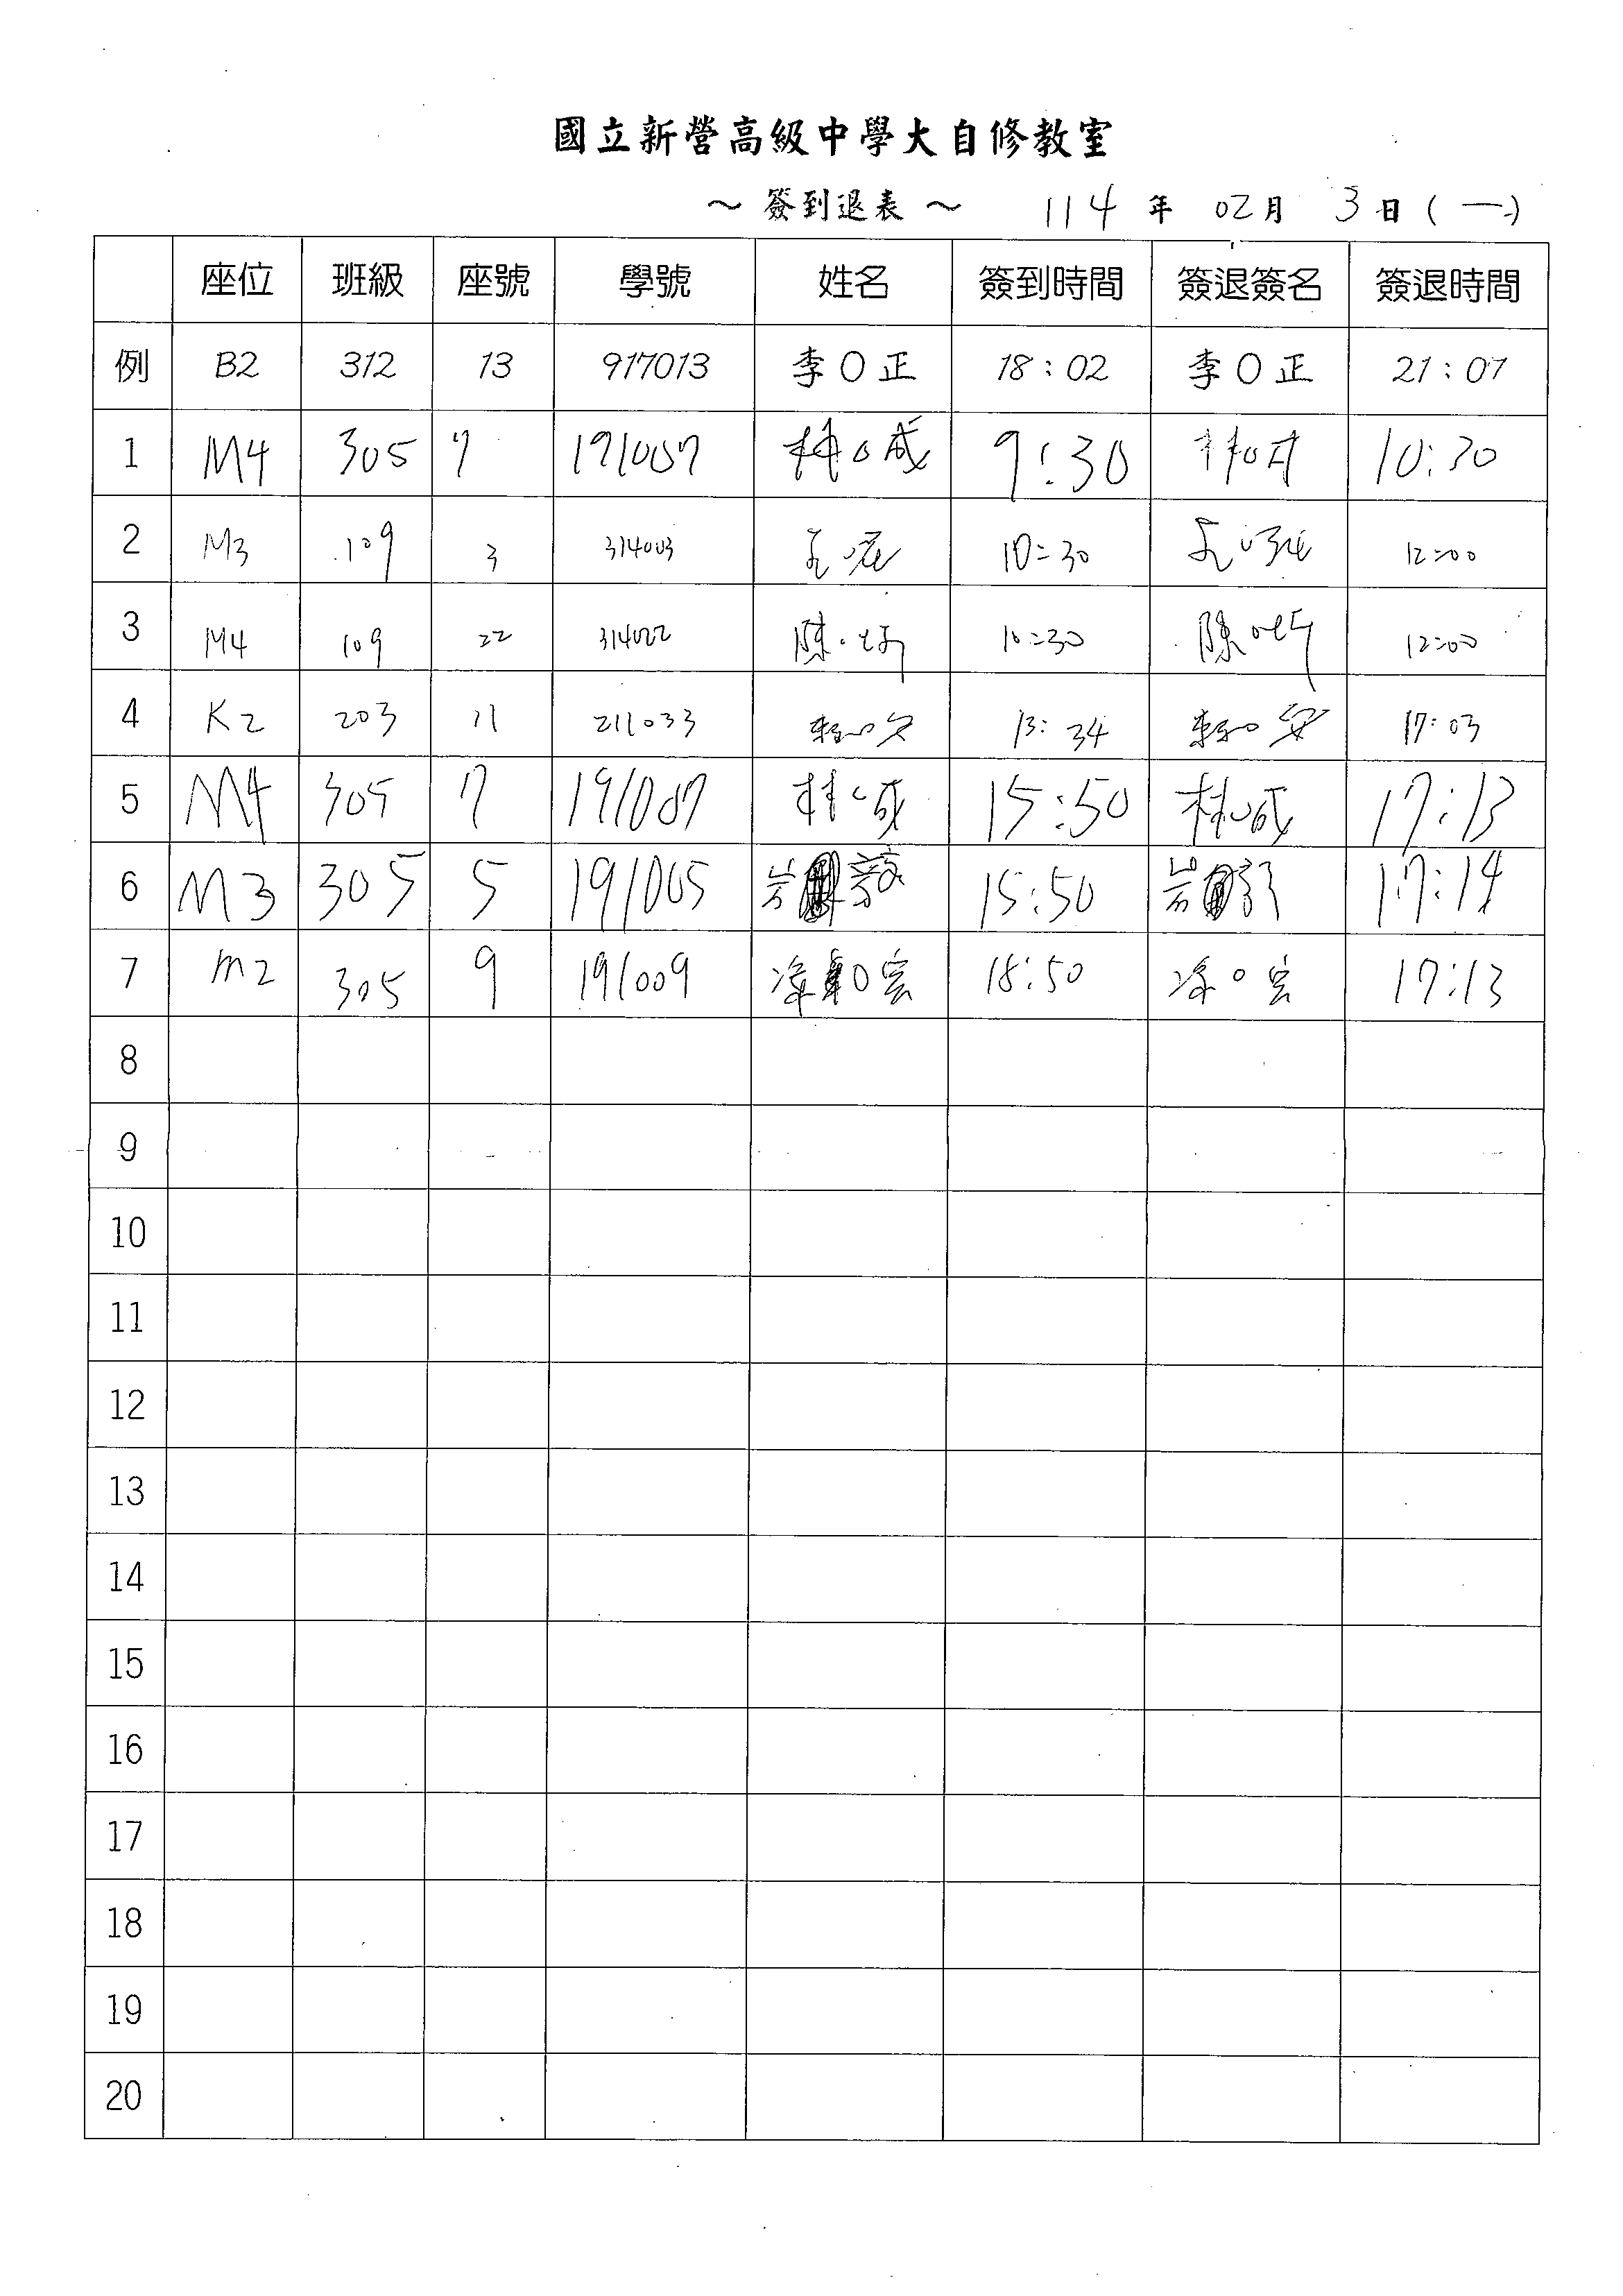 國立新營高級中學大自修教室
～ 簽到退表 ～ 114 年 02 月 3 日 (一)
座位 班級 座號 學號 姓名 簽到時間 簽退簽名 簽退時間
例 B2 312 13 917013 李O正 18:02 李O正 21:07
1 M4 305 7 191007 林O成 9:30 10:30
2 M3 109 3 314003 10:30 12:00
3 M4 109 22 314022 陳 10:30 陳 12:00
4 K2 203 11 211033 13:34 17:03
5 M4 305 7 191007 林O成 15:50 林O成 17:13
6 M3 305 5 191005 15:50 17:14
7 M2 305 9 191009 18:50 17:13
8
9
10
11
12
13
14
15
16
17
18
19
20